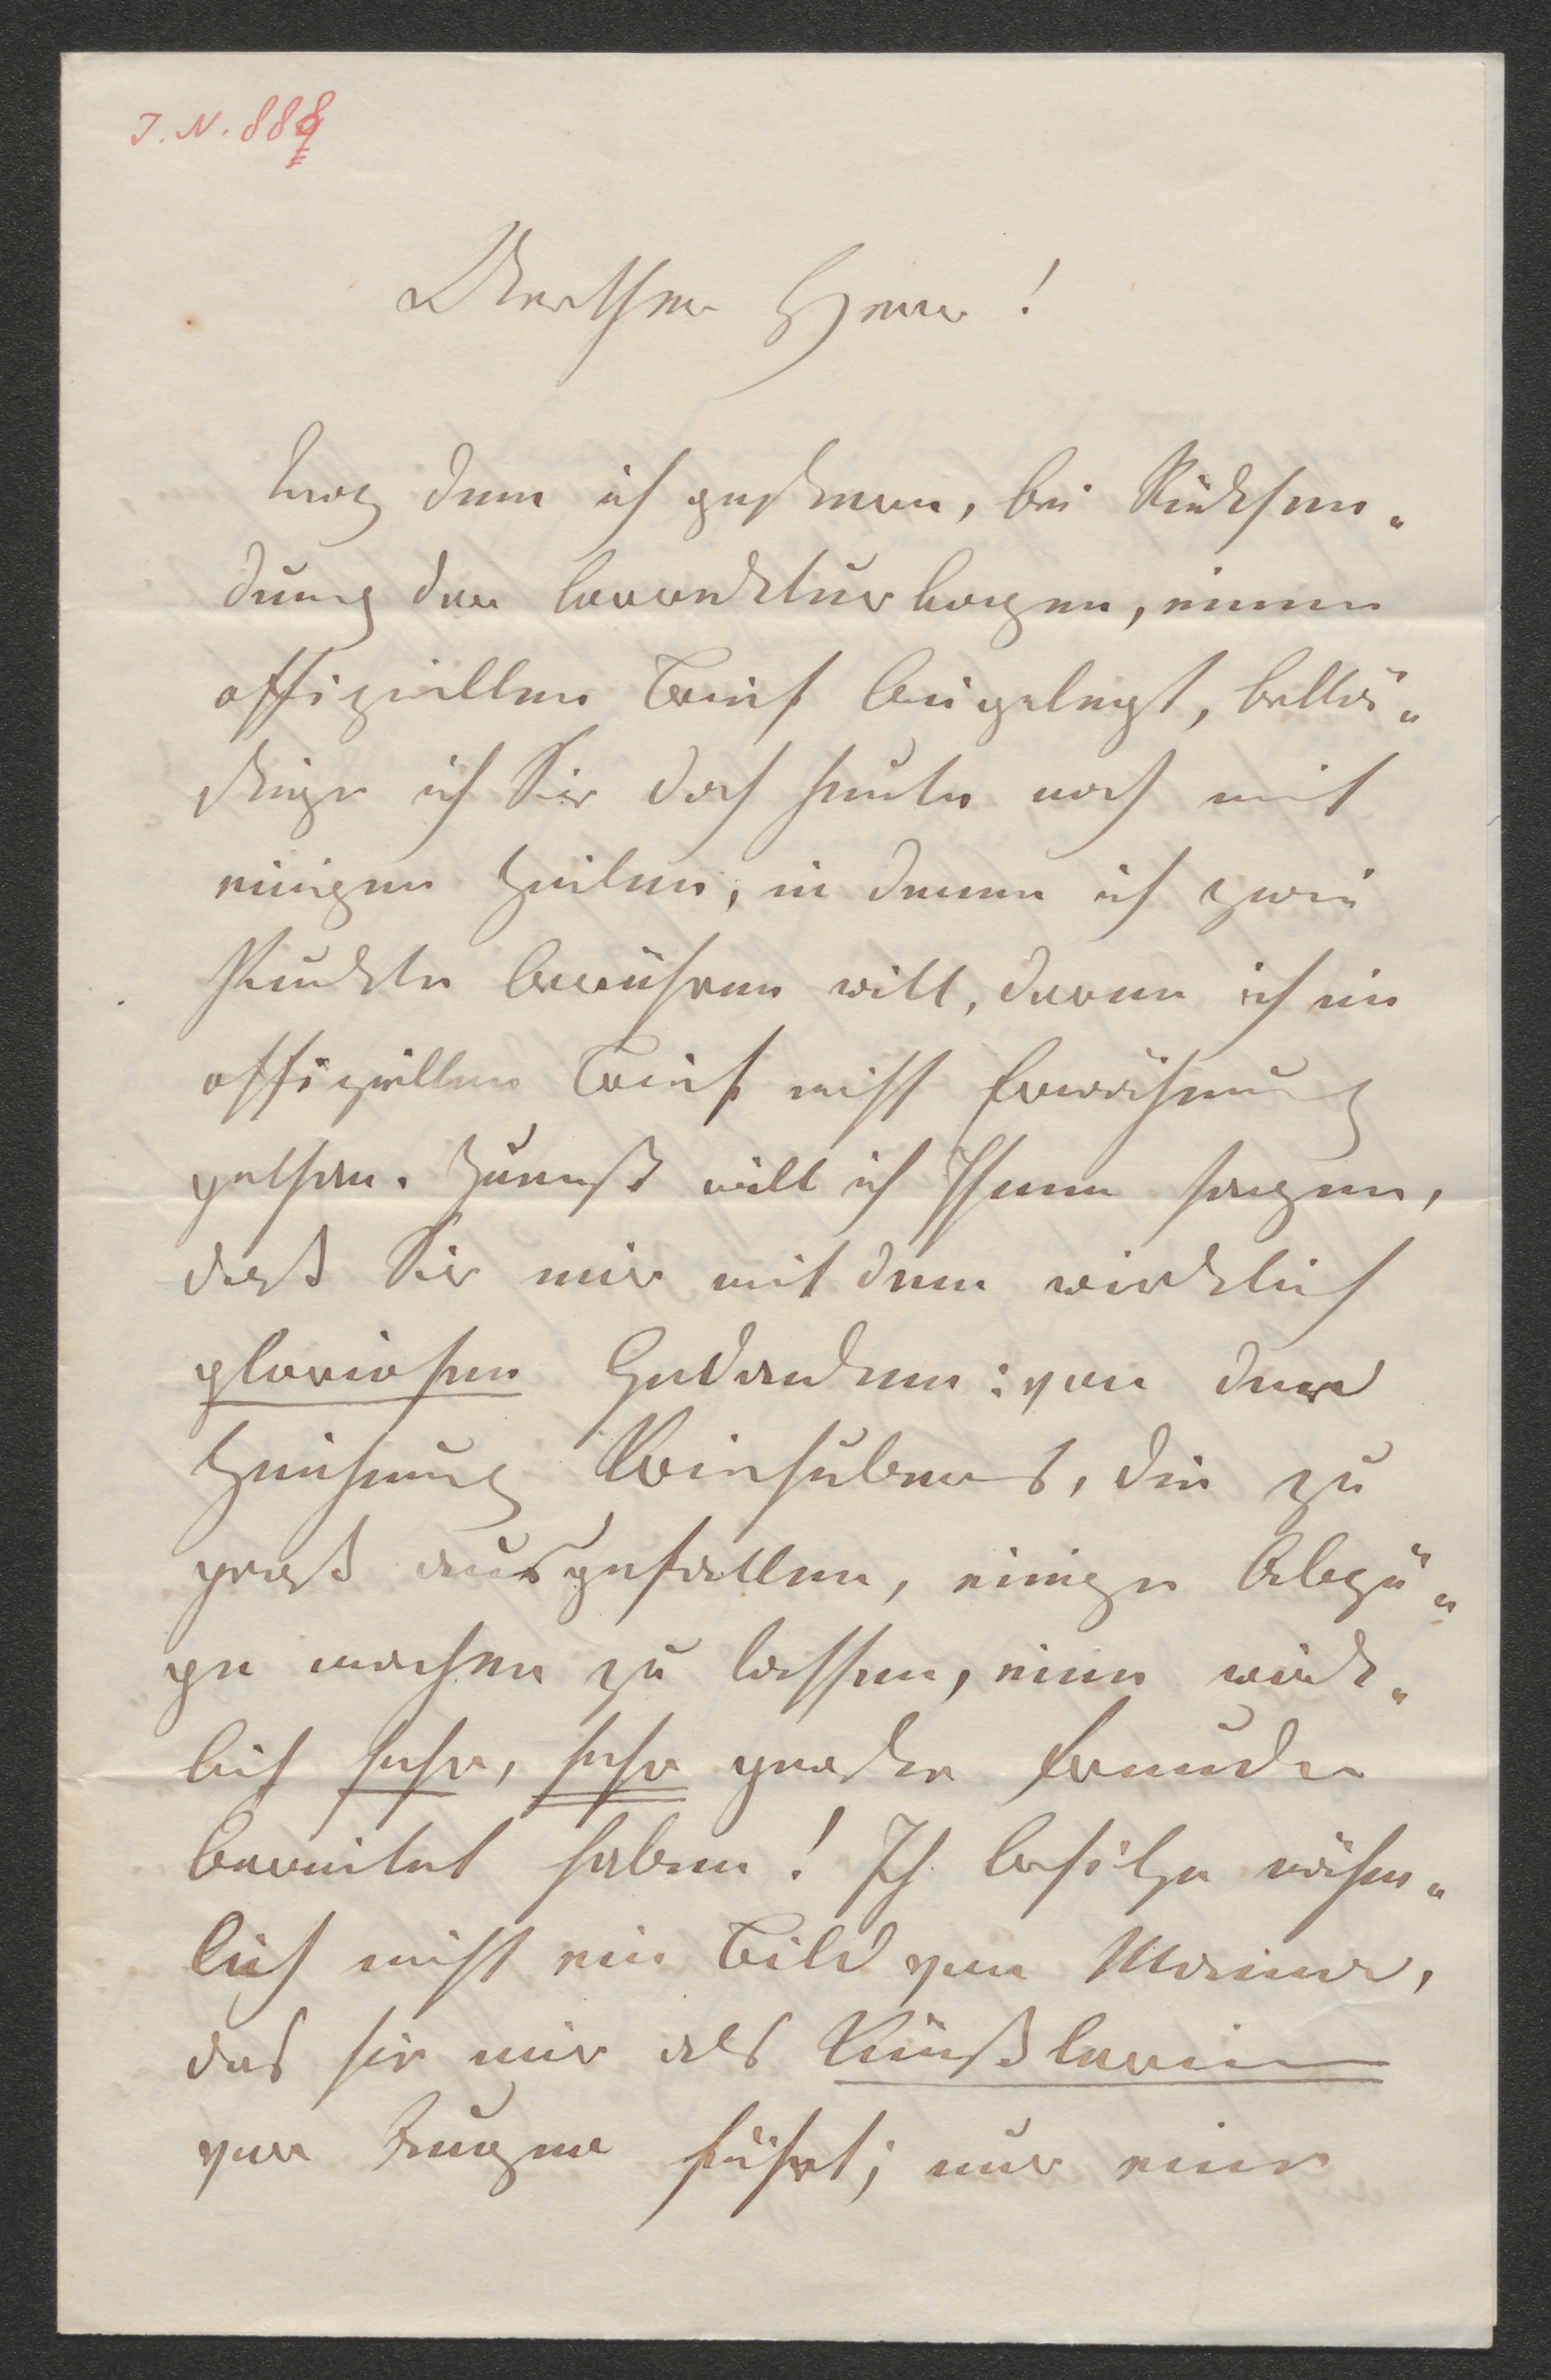 J. N. 889
Werther Herr!
Trotz dem ich gestern, bei Rücksen„
dung der Correkturbogen, einen
offiziellen Brief beigelegt, belä„
stige ich Sie doch heute noch mit
einigen Zeilen, in denen ich zwei
Punkte berühren will, deren ich im
offiziellen Brief nicht Erwähnung
gethan. Zunächst will ich Ihnen sagen,
daß Sie mir mit dem wirklich
gloriosen Gedanken: von der
Zeichnung Kriehubers, die zu
groß ausgefallen, einige Abzü„
ge machen zu lassen, eine wirk„
lich sehr, sehr große Freude
bereitet haben! Ich besitze näm„
lich nicht ein Bild von Meiner,
das sie mir als Künstlerin
vor Augen führt; nur eine